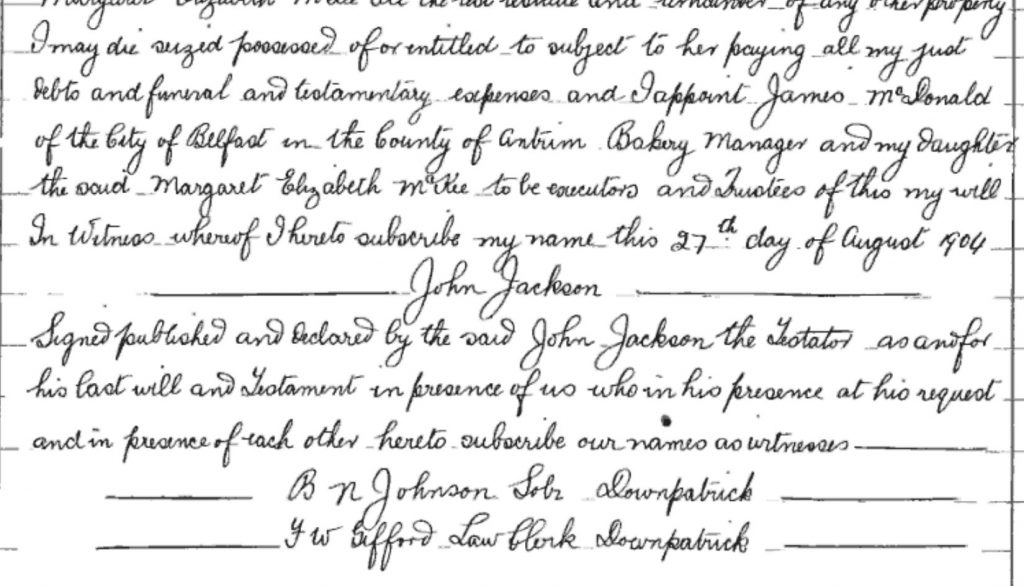 Margaret Elizabeth McKee all the rest residue and remainder of any other property
I may die seized possessed of or entitled to subject to her paying all my just
debts and funeral and testamentary expenses and I appoint James McDonald
of the City of Belfast in the County of Antrim Bakery Manager and my daughter
the said Margaret Elizabeth McKee to be executors and Trustees of this my will
In Witness whereof I hereto subscribe my name this 27th day of August 1904
John Jackson
Signed published and declared by the said John Jackson the Testator as and for
his last will and Testament in presence of us who in his presence at his request
and in presence of each other hereto subscribe our names as witnesses
B N Johnson Solr Downpatrick
F W Gifford Law Clerk Downpatrick